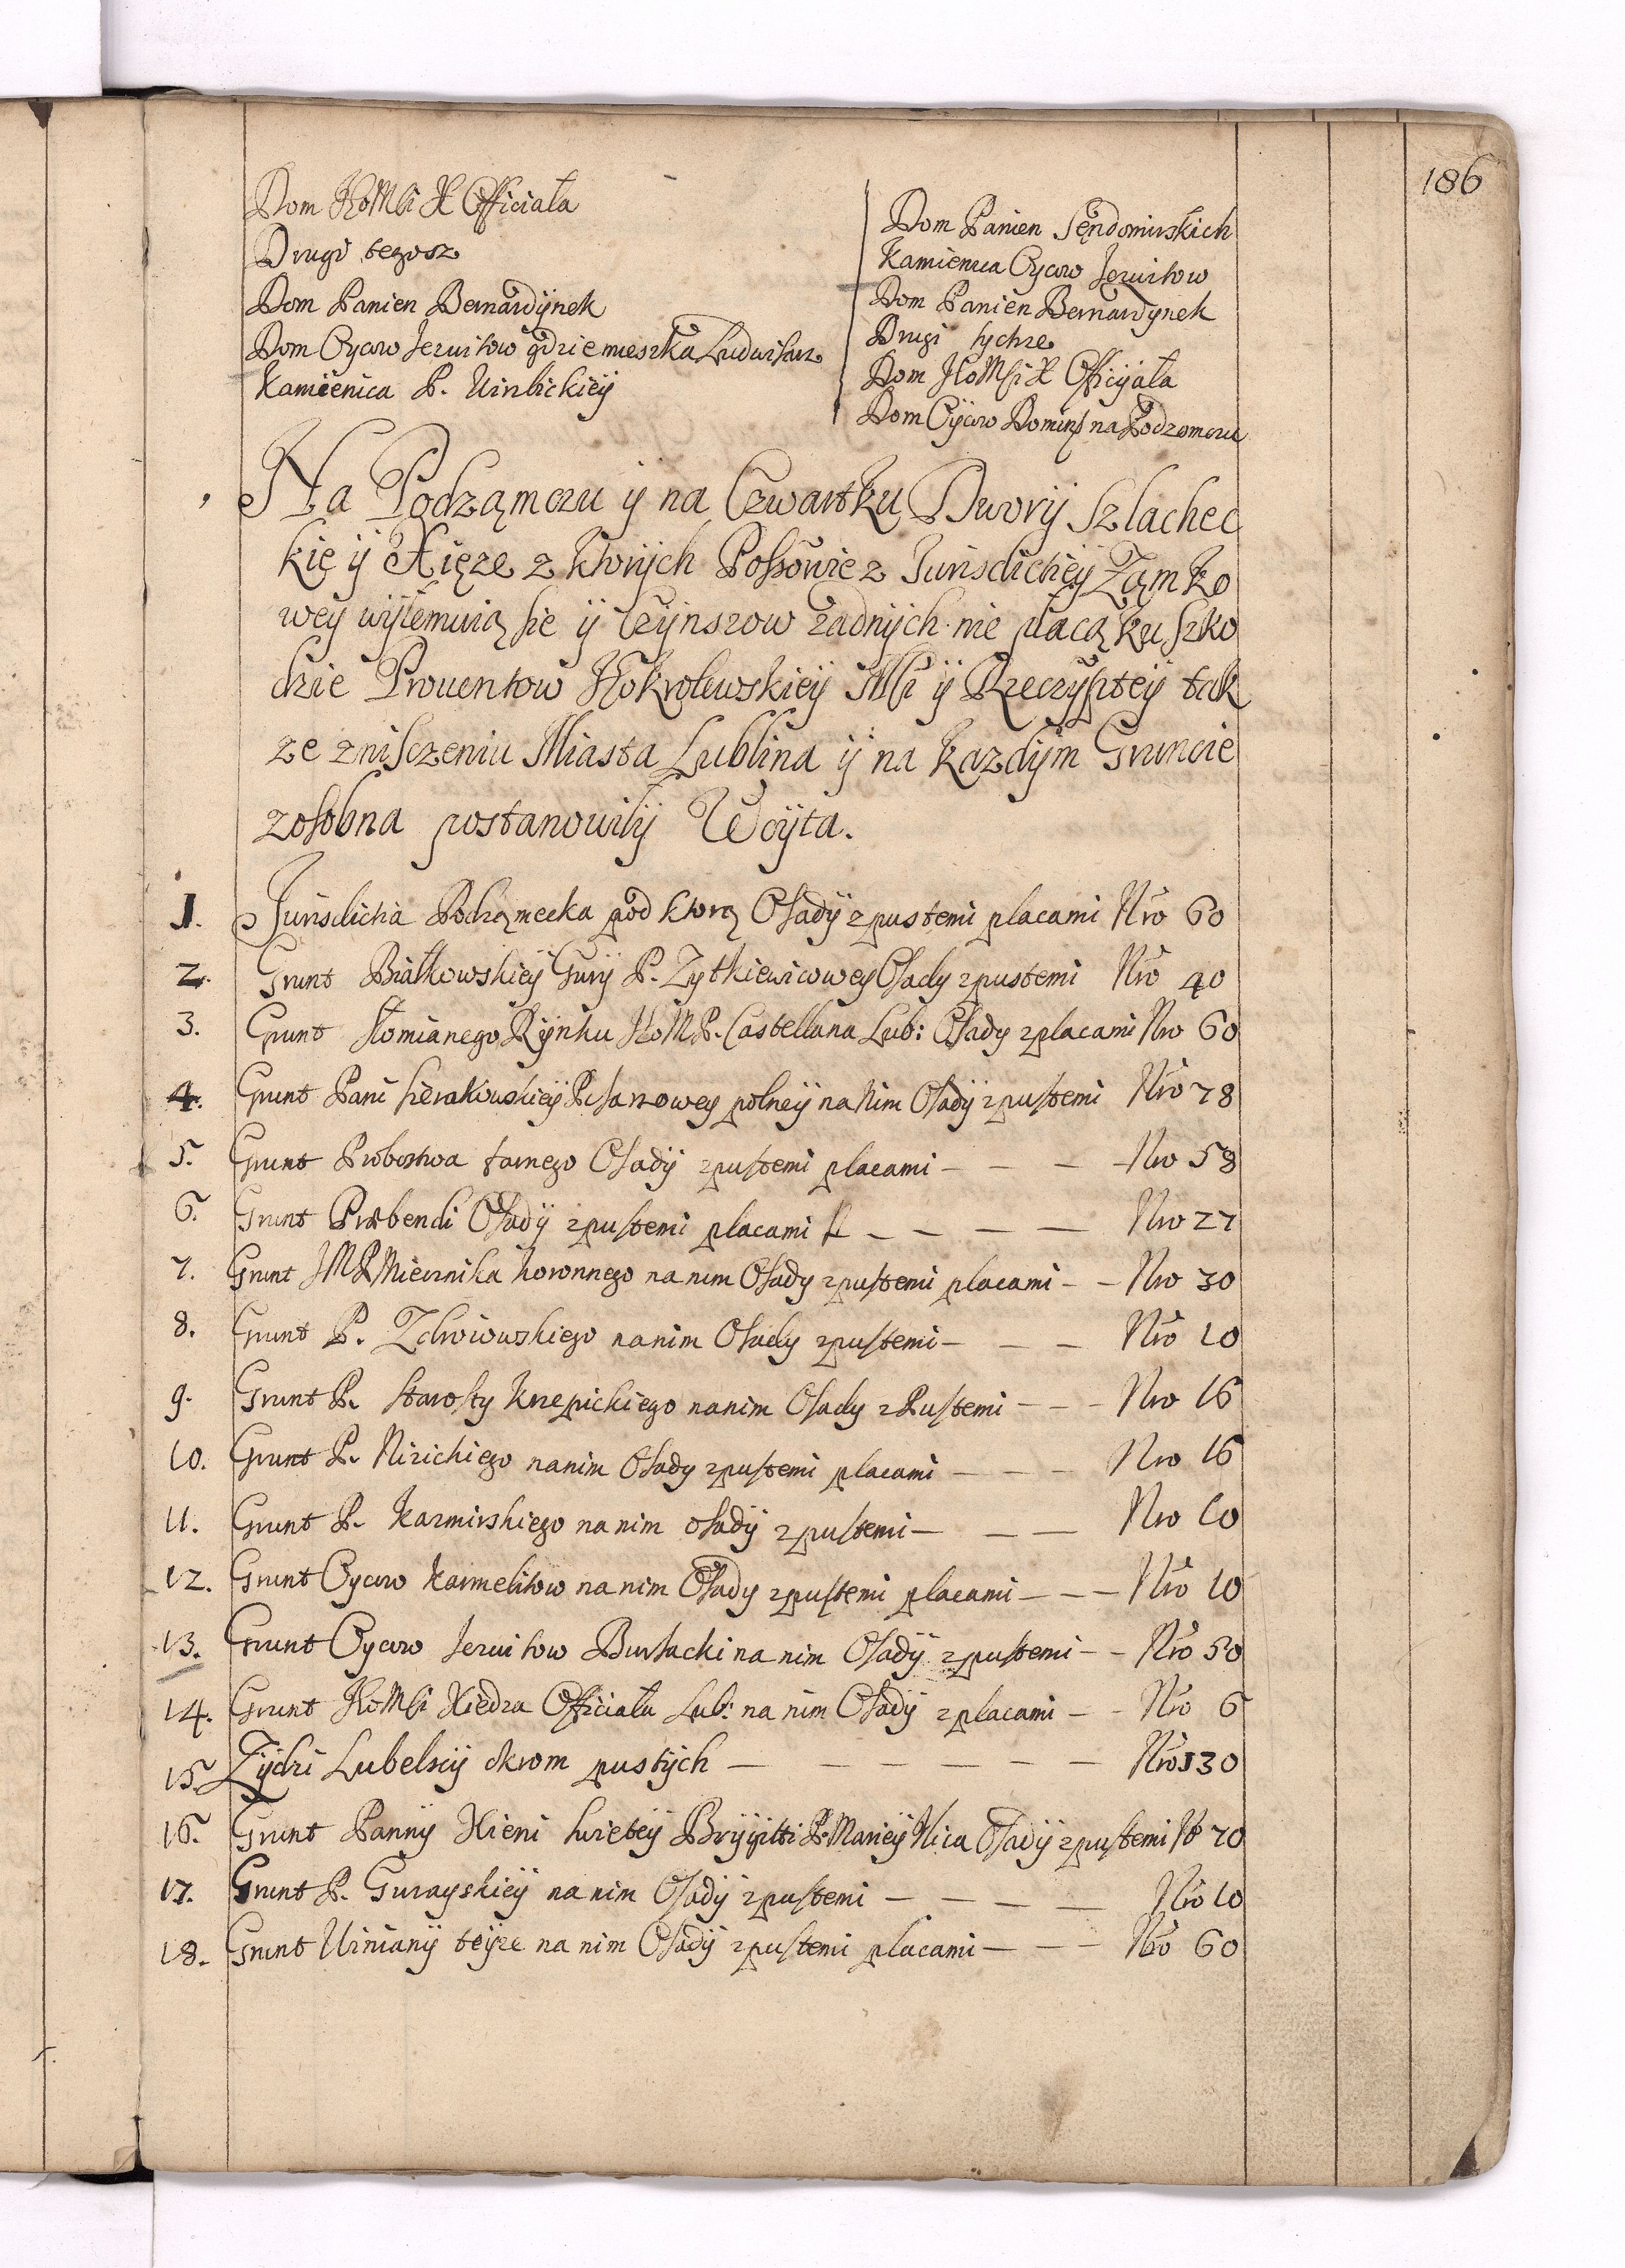 186
Dom JKoMści X Officiała
Drugi tegosz
Dom Panien Bernardÿnek
Dom Oÿcow Jezuitow gdzie mieszka Ludwisarz
Kamienica P. Winbickieÿ
Dom Panien Sędomirskich
Kamienica Oycow Jezuitow
Dom Panien Bernardynek
Drugi tychze
Dom JKoMści X Officÿała
Dom Oÿcow Domink na Podzamczu
Na Podząmczu ÿ na Czwartku Dworÿ Szlachec
kię ÿ Xięze z ktorÿch Possowie z Jurisdictieÿ Ząmko
wey wÿiemuią sie ÿ Czÿnszow zadnÿch nie płacą ku szko
dzie Prouentow JKokrolewskieÿ Mści ÿ Rzeczÿpteÿ tak
ze zniszczeniu Miasta Lublina ÿ na kazdÿm Gruncie
zosobna postanowilÿ Woÿta.
1. Jurisdictia Podząmecka pod ktorą Osadÿ z pustemi placami Nro 60
2. Grunt Białkowskieÿ Gurÿ P. Zytkiewicowey Osady z pustemi Nro 40
3. Grunt Słomianego Rÿnku JKoMP. Castellana Lub: Osady z placami Nro 60
4. Grunt Pani Sierakowskieÿ Pisarzowey polneÿ na Nim Osadÿ z pustemi Nro 78
5. Grunt Probostwa farnego Osadÿ z pustemi placami - - - Nro 58
6. Grunt Præbendi Osadÿ z pustemi placami - - - - Nro 27
7. Grunt JMP Miecznika koronnego na nim Osady z pustemi placami - - Nro 30
8. Grunt P. Zdrowiowskiego na nim Osady z pustemi - - - Nro 10
9. Grunt P. Starosty Krzepickiego na nim Osady z Pustemi - - - Nro 16
10. Grunt P. Nizickiego na nim Osady z pustemi placami - - - Nro 16
11. Grunt P. Kazmirskiego na nim osadÿ z pustemi - - - Nro 10
12. Grunt Oycow Karmelitow na nim Osady z pustemi placami - - - Nro 10
13. Grunt Oycow Jezuitow Bursacki na nim Osadÿ z pustemi - - Nro 50
14. Grunt JKoMści Xiedza Officiała Lub: na nim Osadÿ z placami - - Nro 6
15. Zÿdzi Lubelscÿ okrom pustÿch - - - - - Nro 130
16. Grunt Pannÿ Xieni Swieteÿ Brÿgitti P. Marieÿ Osadÿ z pustemi No 70
17. Grunt P. Gurayskieÿ na nim Osadÿ z pustemi - - - - Nro 10
18. Grunt Winianÿ teÿze na nim Osadÿ z pustemi placami - - - Nro 60